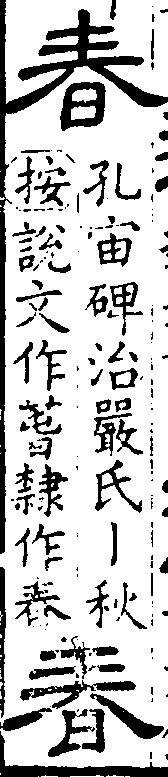 春
孔宙碑治嚴氏丨秋
按說文作萅隸作春
春